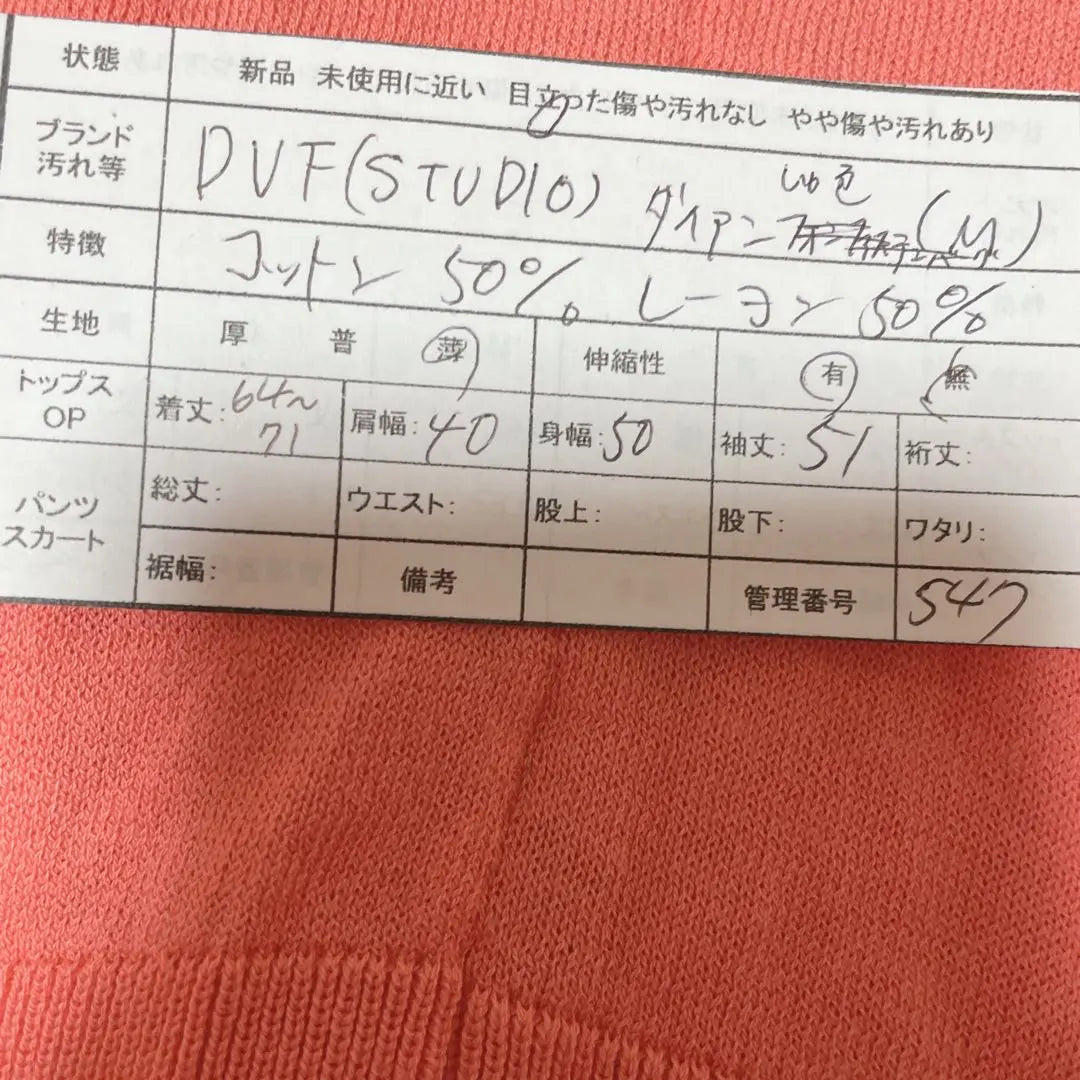 状態 新品 未使用に近い 目立った傷や汚れなし やや傷や汚れあり
ブランド
汚れ等 DVF(STUDIO) ダイアン (M)
しゅ色
特徴 コットン 50% レーヨン 50%
生地 厚 普 薄 伸縮性 有 無
トップス
OP 着丈:64〜71 肩幅:40 身幅:50 袖丈:51 裄丈:
パンツ
スカート 総丈: ウエスト: 股上: 股下: ワタリ:
裾幅: 備考 管理番号 547